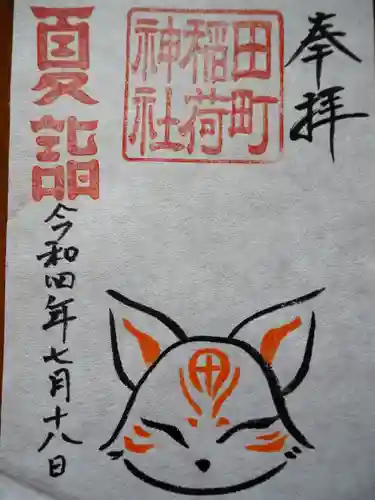 奉拝
田町
稲荷
神社
夏詣
令和四年七月十八日
田